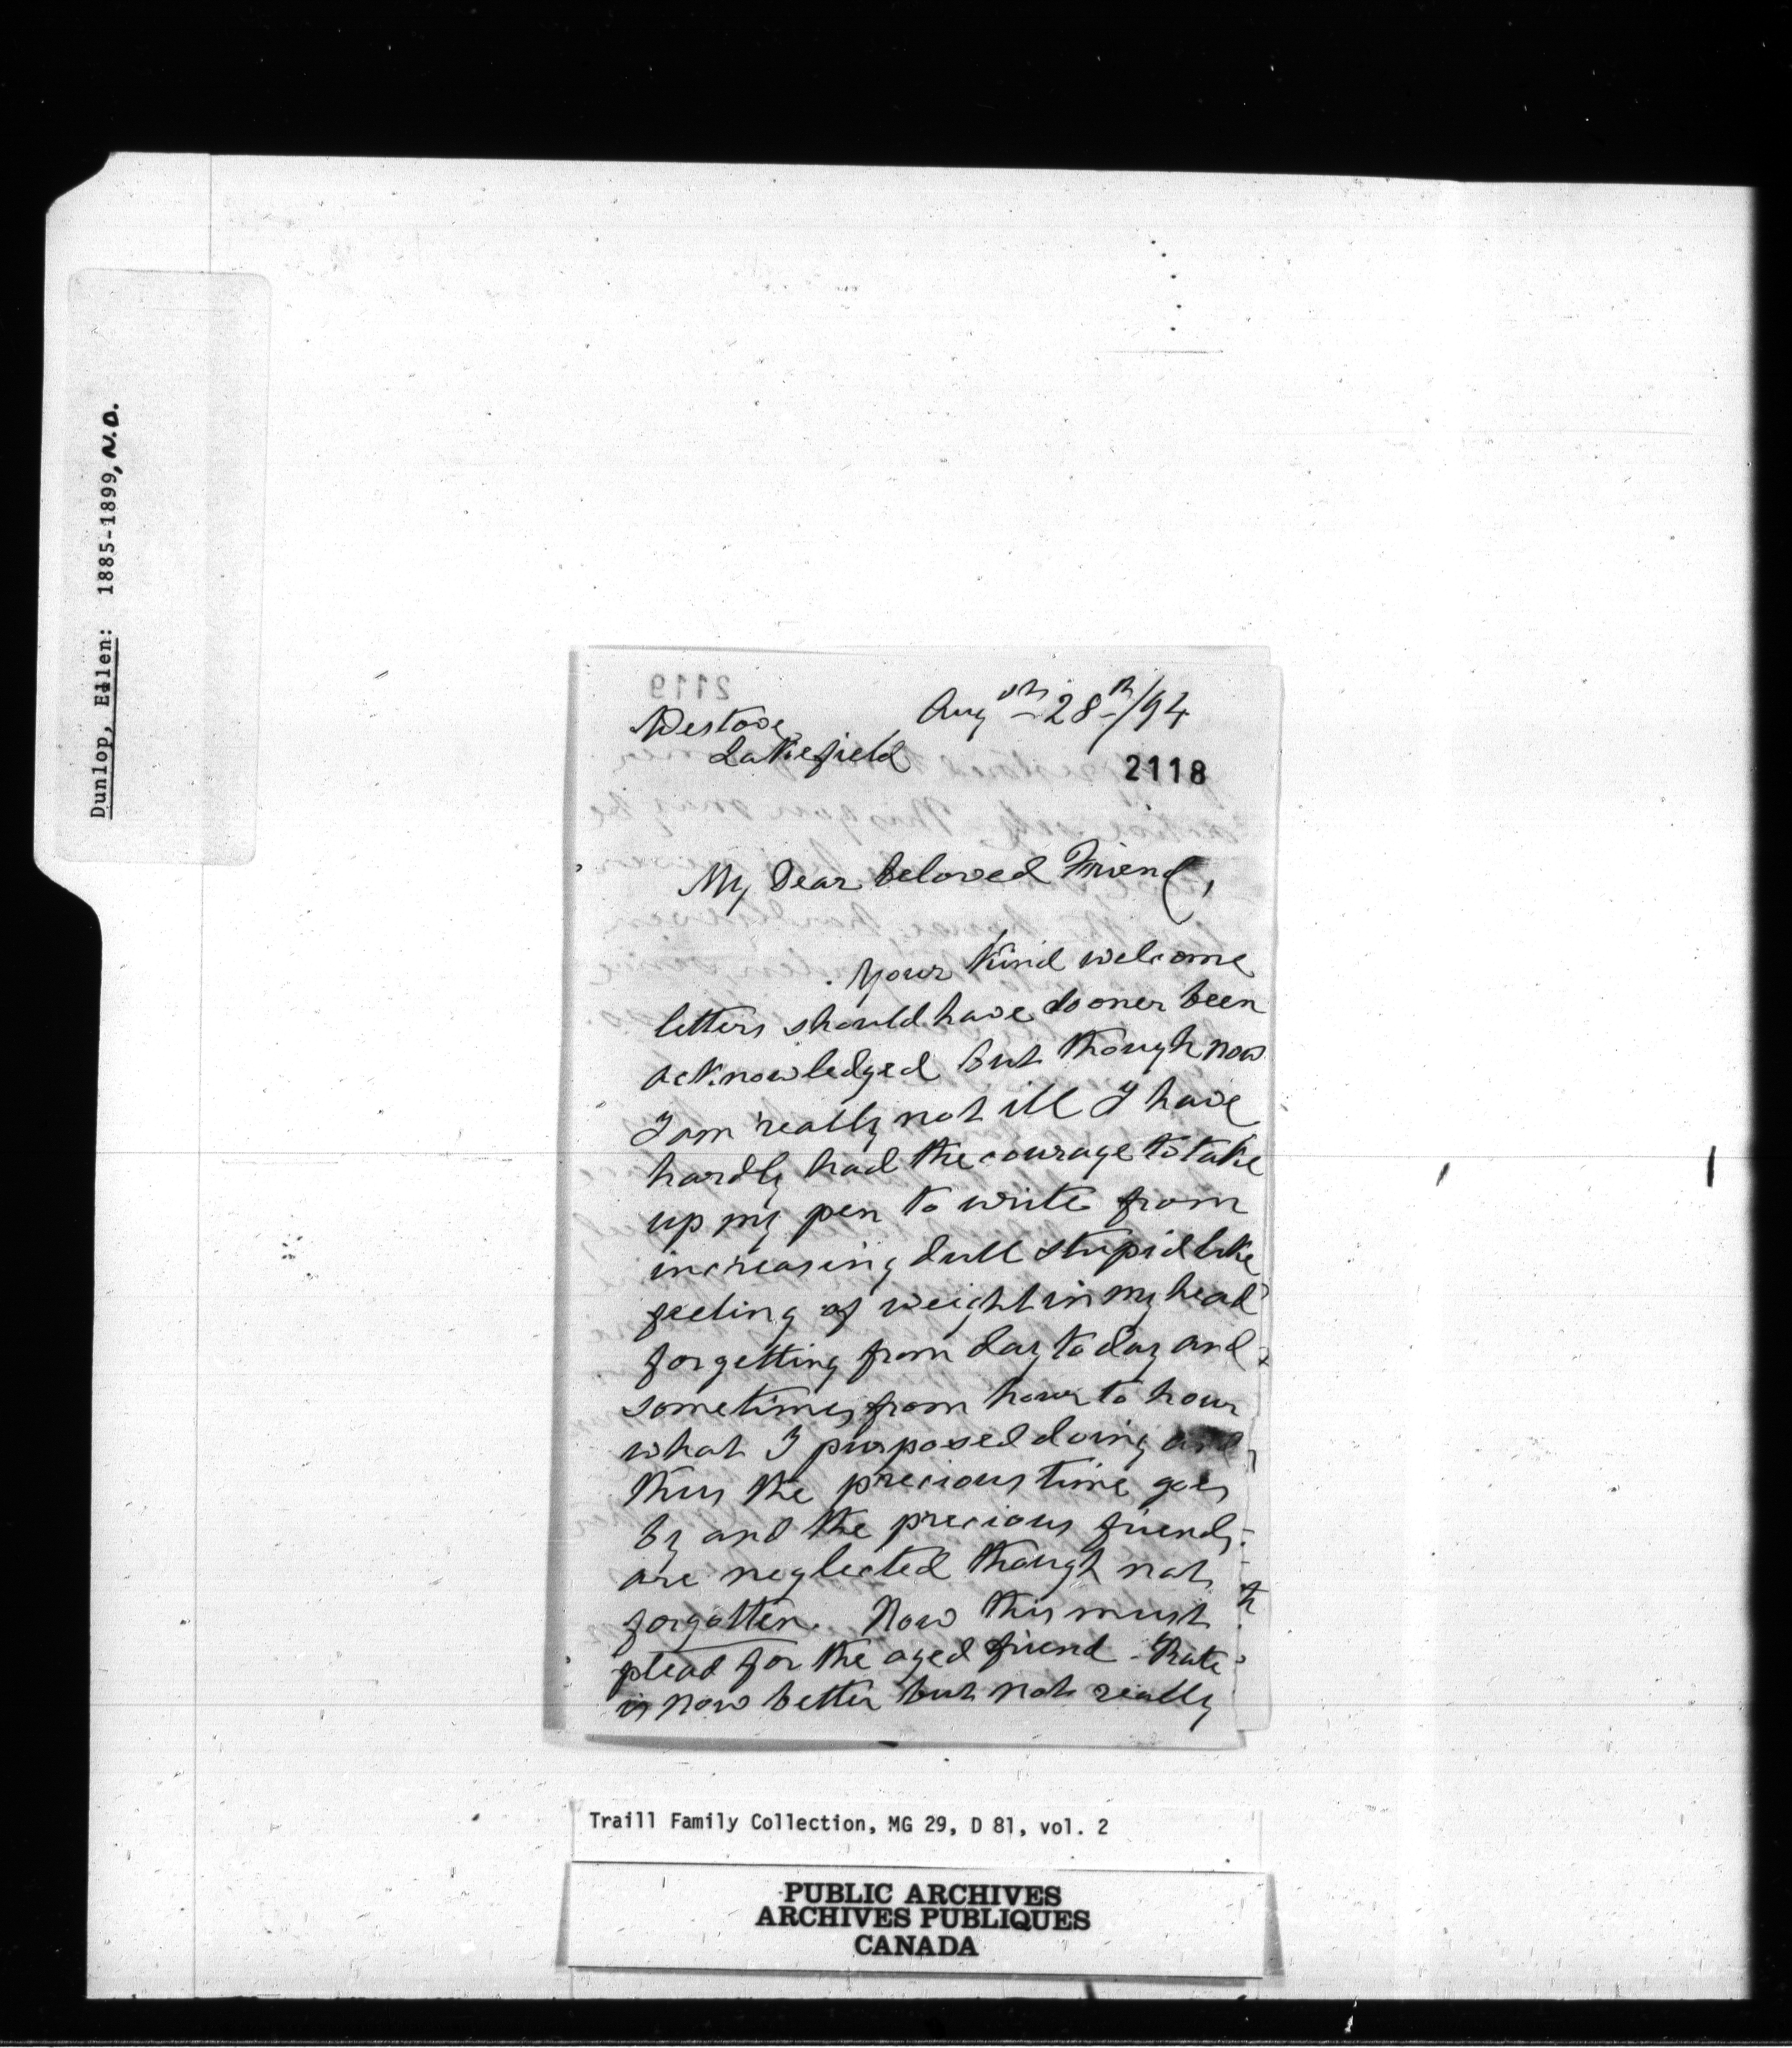 Dunlop, Ellen: 1885-1899, N.D.
2119
Westove Augst 28th/94
Lakefield
2118
My Dear beloved Friend,
Your kind welcome
letters should have sooner been
acknowledged but though now
I am really not ill I have
hardly had the courage to take
up my pen to write from
increasing dull stupid like
feeling of weight in my head
forgetting from day to day and
sometimes from hour to hour
what I purposed doing and
thus the precious time goes
by and the precious friends
are neglected though not
forgotten. Now this must
plead for the aged friend - Kate
is now better but not really
Traill Family Collection, MG 29, D 81, vol. 2
PUBLIC ARCHIVES
ARCHIVES PUBLIQUES
CANADA